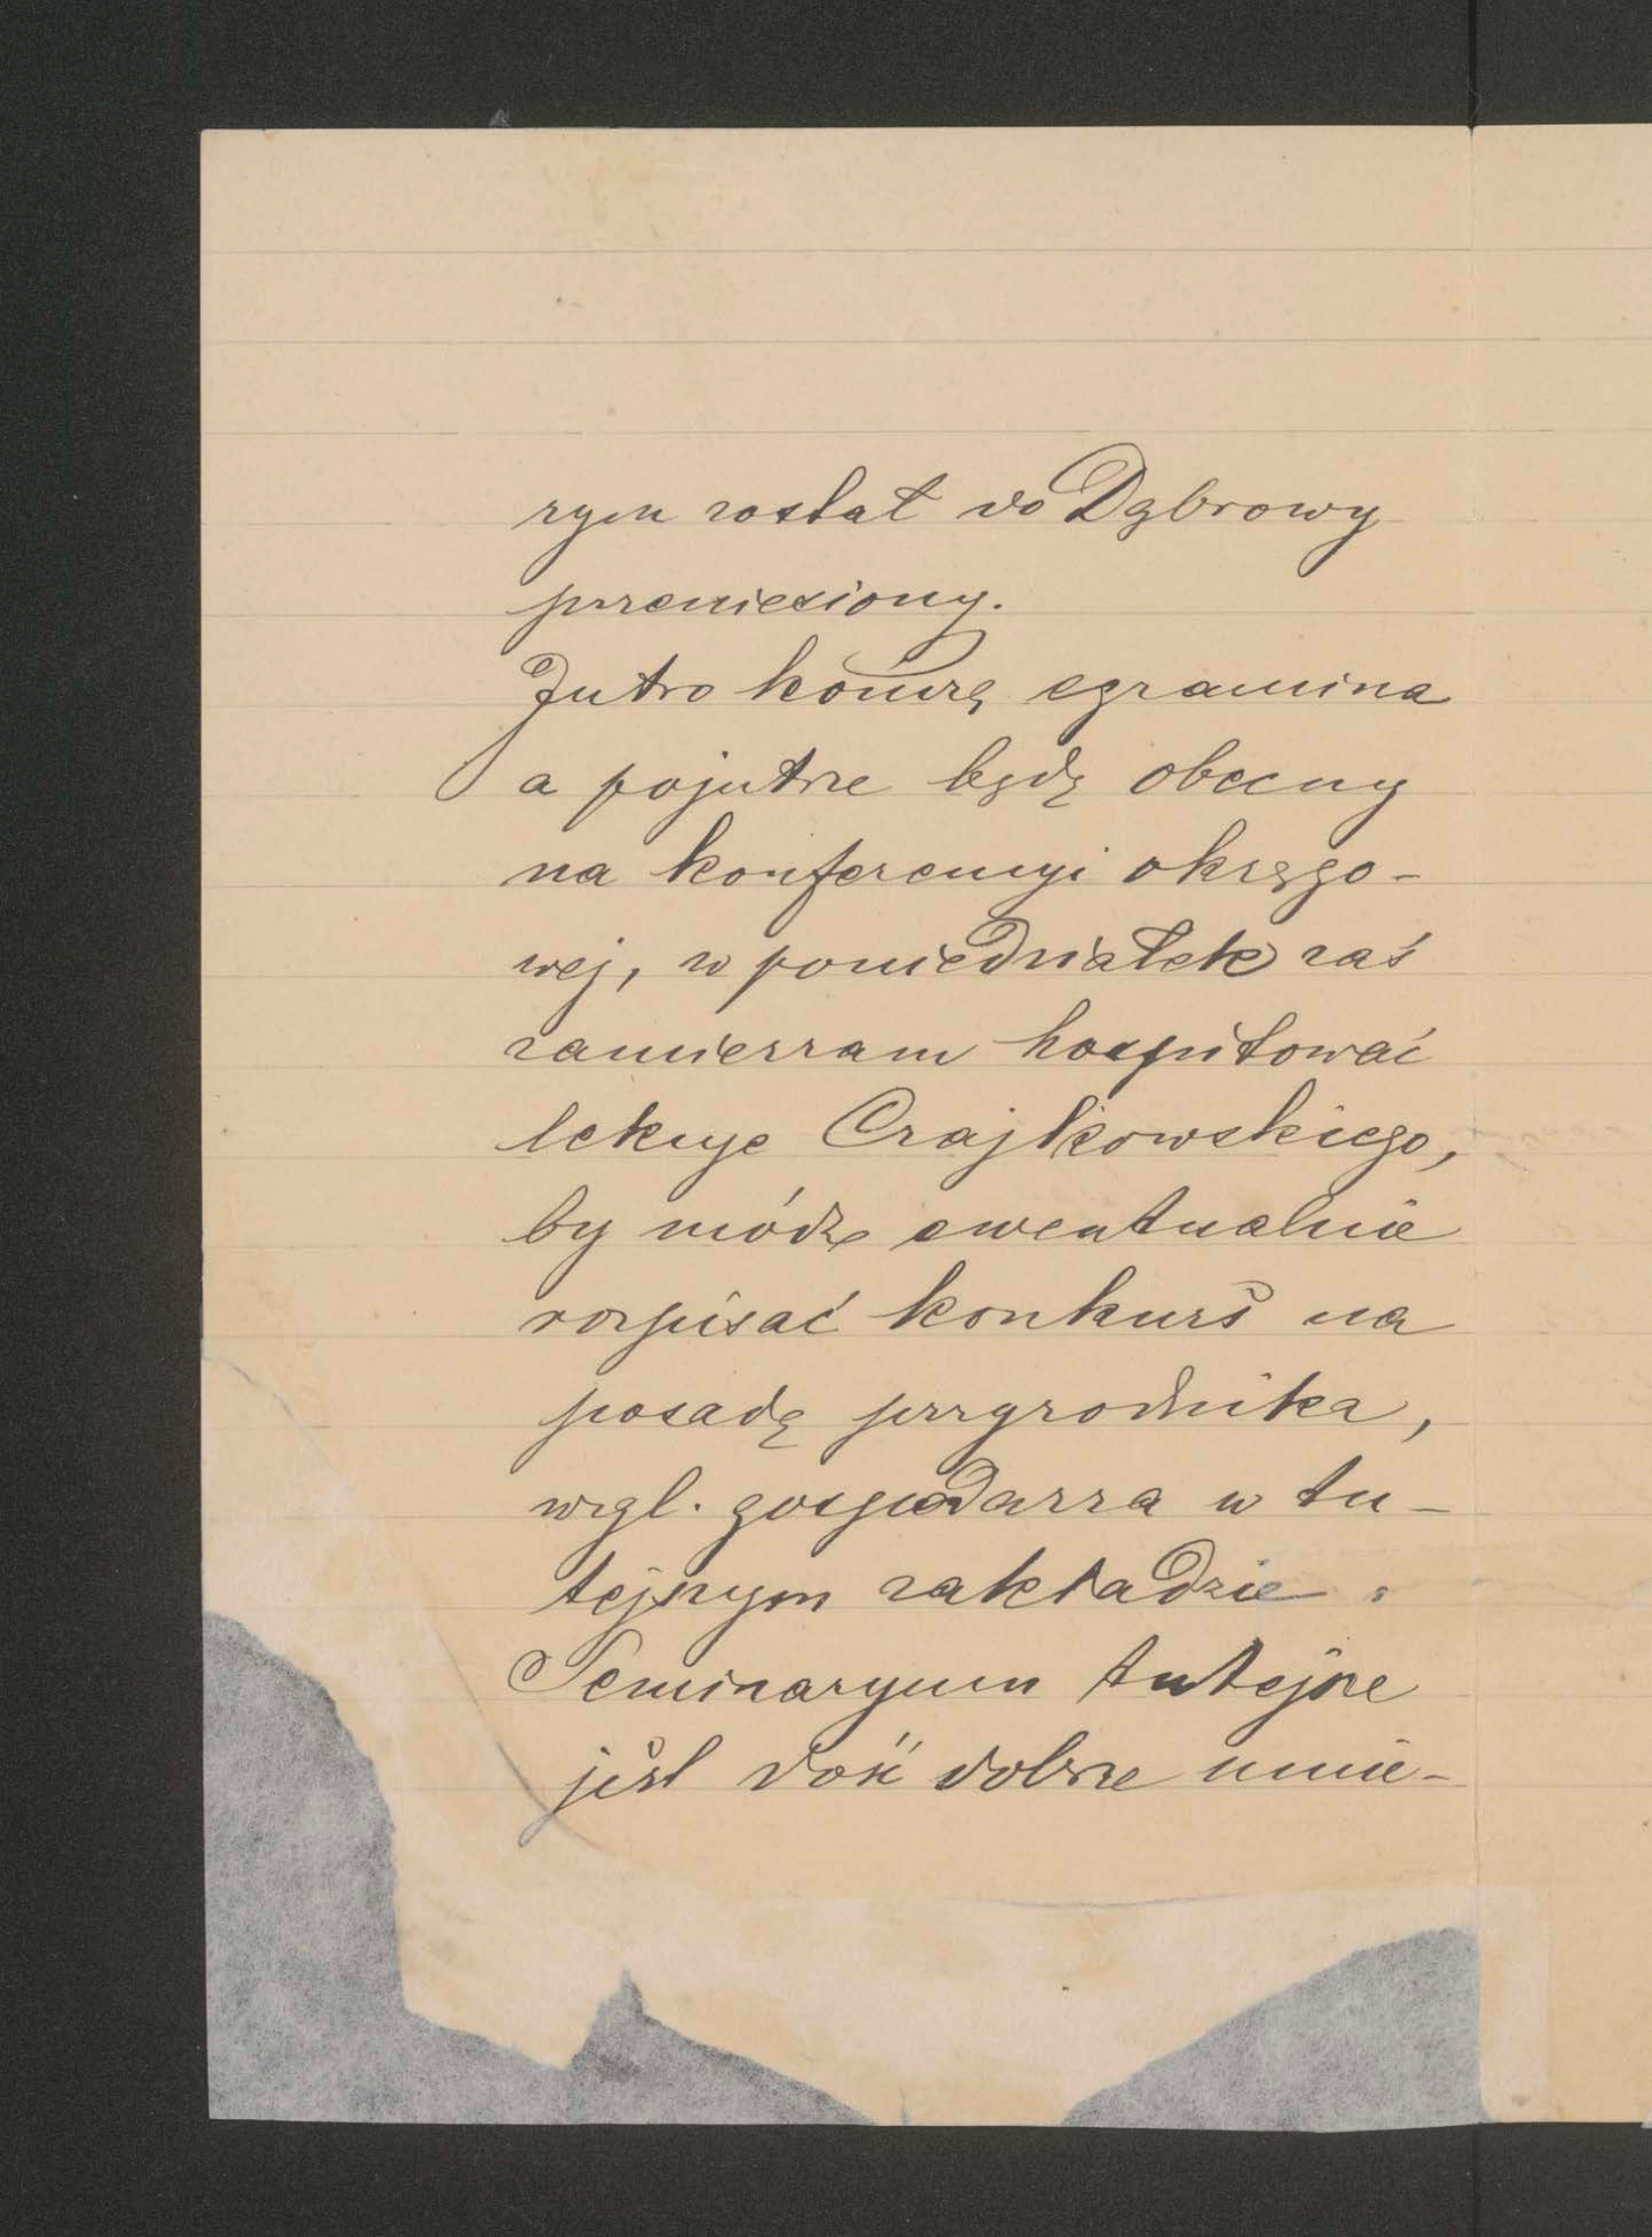 rym został do Dąbrowy
przeniesiony.
Jutro kończę egzamina
a pojutrze będę obecny
na konferencyi okręgo-
wej, w poniedziałek zaś
zamierzam hospitować
lekcye Czajkowskiego,
by módz ewentualnie
rozpisać konkurs na
posadę przyrodnika,
wzgl. gospodarza w tu-
tejszym zakładzie.
Seminaryum tutejsze
jest dość dobrze umie-